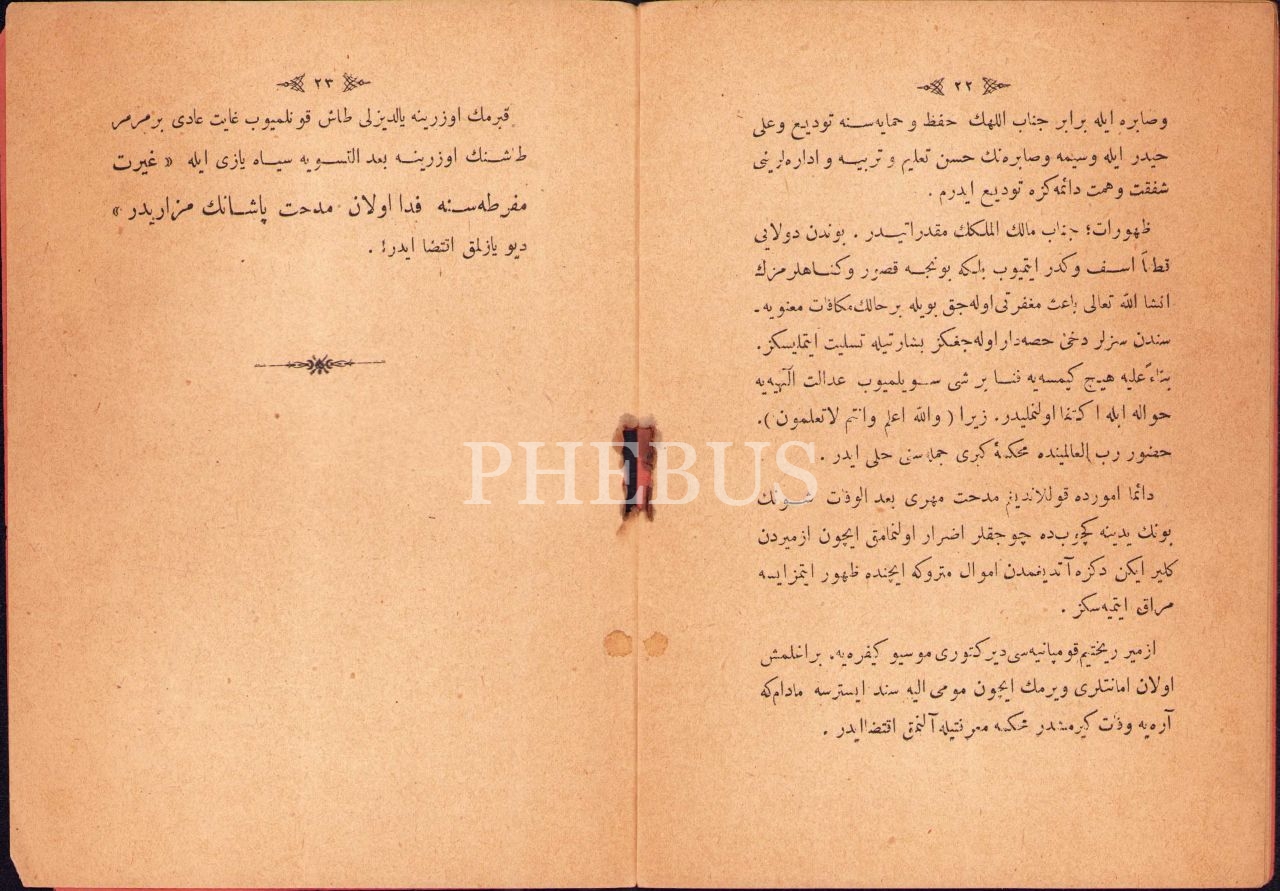 ٢٢
وصابره ایله برابر جناب اللهك حفظ و حمایه‌سنه تودیع وعلی
حیدر ایله وسیمه وصابره‌نك حسن تعلیم و تربیه و اداره‌لرینی
شفقت وهمت دائمه‌كزه تودیع ایدرم .
ظهورات؛ جناب مالك الملكك مقدراتیدر . بوندن دولایی
قطعاً اسف وكدر ایتمیوب بلكه بونجه قصور وكناهلرمزك
انشا الله تعالی باعث مغفرتی اوله‌جق بویله بر حالك مكافات معنویه‌ـ
سندن سزلر دخی حصه‌دار اوله‌جغكز بشارتیله تسلیت ایتملیسكز.
بناءً علیه هیچ كیمسه‌یه فنا بر شی سویلمیوب عدالت آلهیه‌یه
حواله ایله اكتفا اولنملیدر. زیرا ( والله اعلم وانتم لاتعلمون ).
حضور رب العالمینده محكمهٔ كبری جمله‌سنی حل ایدر .
دائما امورده قوللاندیغم مدحت مهری بعد الوفات شونك
بونك یدینه كچوب‌ده چوجقلر اضرار اولنمامق ایچون ازمیردن
كلیر ایكن دكزه آتدیغمدن اموال متروكه ایچنده ظهور ایتمز ایسه
مراق ایتمیه‌سكز .
ازمیر ریختیم قومپانیه‌سی دیركتوری موسیو كیفره‌یه. براغلمش
اولان امانتلری ویرمك ایچون مومی الیه سند ایسترسه مادام‌كه
آره‌یه وفات كیرمشدر محكمه معرفتیله آلنمق اقتضا ایدر .
٢٣
قبرمك اوزرینه یالدیزلی طاش قونلمیوب غایت عادی بر مرمر
طاشنك اوزرینه بعد التسویه سیاه یازی ایله « غیرت
مفرطه‌سنه فدا اولان مدحت پاشانك مزاریدر »
دیو یازلمق اقتضا ایدر! .
PHEBUS